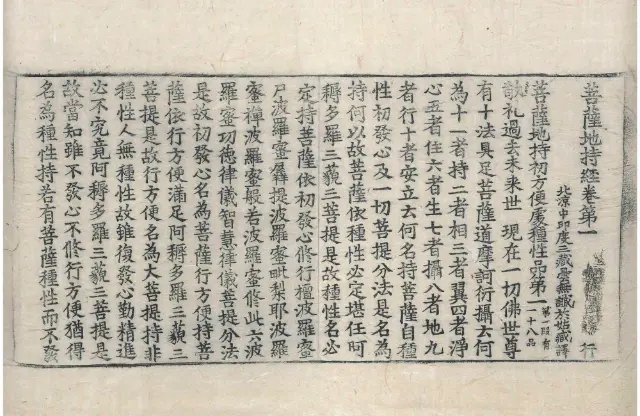 菩薩地持經卷第一 行
北涼中印度三藏曇無讖於姑臧譯
菩薩地持初方便處種性品第一 第一段有一十八品
敬礼過去未來世 現在一切佛世尊
有十法具足菩薩道摩訶衍攝云何
為十一者持二者相三者翼四者淨
心五者住六者生七者攝八者地九
者行十者安立云何名持菩薩自種
性初發心及一切菩提分法是名為
持何以故菩薩依種性必定堪任阿
耨多羅三藐三菩提是故種性名必
定持菩薩依初發心修行檀波羅蜜
尸波羅蜜羼提波羅蜜毗梨耶波羅
蜜禪波羅蜜般若波羅蜜修此六波
羅蜜功德律儀智慧律儀菩提分法
是故初發心名為菩薩行方便持菩
薩依行方便滿足阿耨多羅三藐三
菩提是故行方便名為大菩提持非
種性人無種性故雖復發心勤精進
必不究竟阿耨多羅三藐三菩提是
故當知雖不發心不修行方便猶得
名為種性持若有菩薩種性而不發